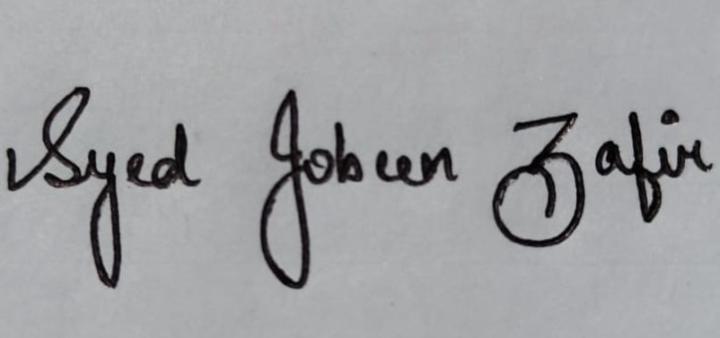 Syed Jobeen Zafir